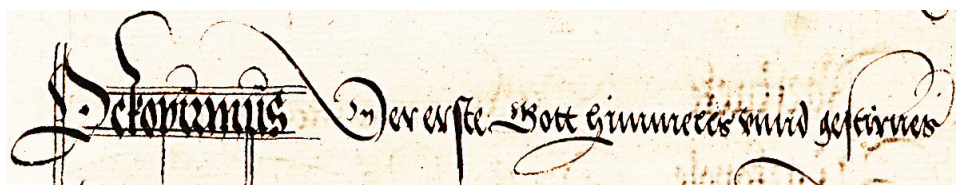 Ockopirmus Der erste Gott himmels vnnd gestirnes